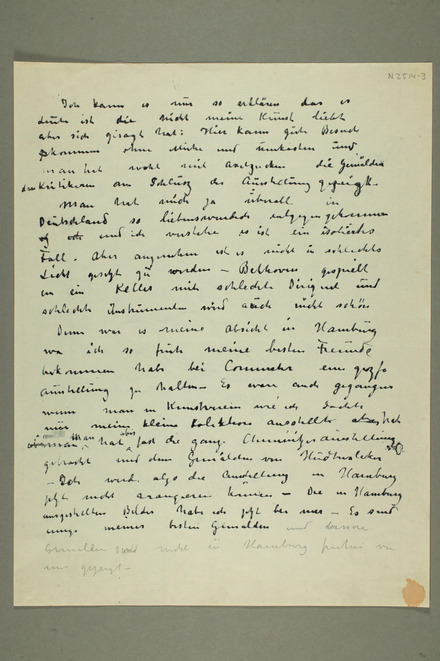 N 2514-3
Ich kann es nur so erklären das es
Leute ist die nicht meine Kunst liebt
aber sich gesagt hat: Hier kann gute Besuch
kommen ohne Mühe und Unkosten und
man hat wohl mit die Gemälden
den Kritikern am Schluss der Ausstellung gezeigt.
Man hat mich ja überall in
Deutschland so liebenswürdig entgegengekommen
und ich verstehe es ist ein isoliertes
Fall. Aber angenehm ist es nicht in schlechte
Licht gesetzt zu werden – Bethoven gespielt
in ein Keller mit schlechte Dirigent und
schlechte Instrumenten wird auch nicht schön
Denn war es meine Absicht in Hamburg
wo ich so früh meine besten Freunde
bekommen habe bei Commeter eine grosse
Ausstellung zu halten – Es wäre auch gegangen
wenn man in Kunstverein wie ich dachte
nur meine kleine Kollektion ausstellte
man hat aber fast die ganz Chemnitzerausstellung
gebracht und dem Gemälden von Hudtwalcker
– Ich werde also die Ausstellung in Hamburg
jetzt nicht arrangieren können – Die in Hamburg
ausgestellten Bilder habe ich jetzt bei mir – Es sind
einige meiner besten Gemälden und
nicht in Hamburg früher von
mir gezeigt –